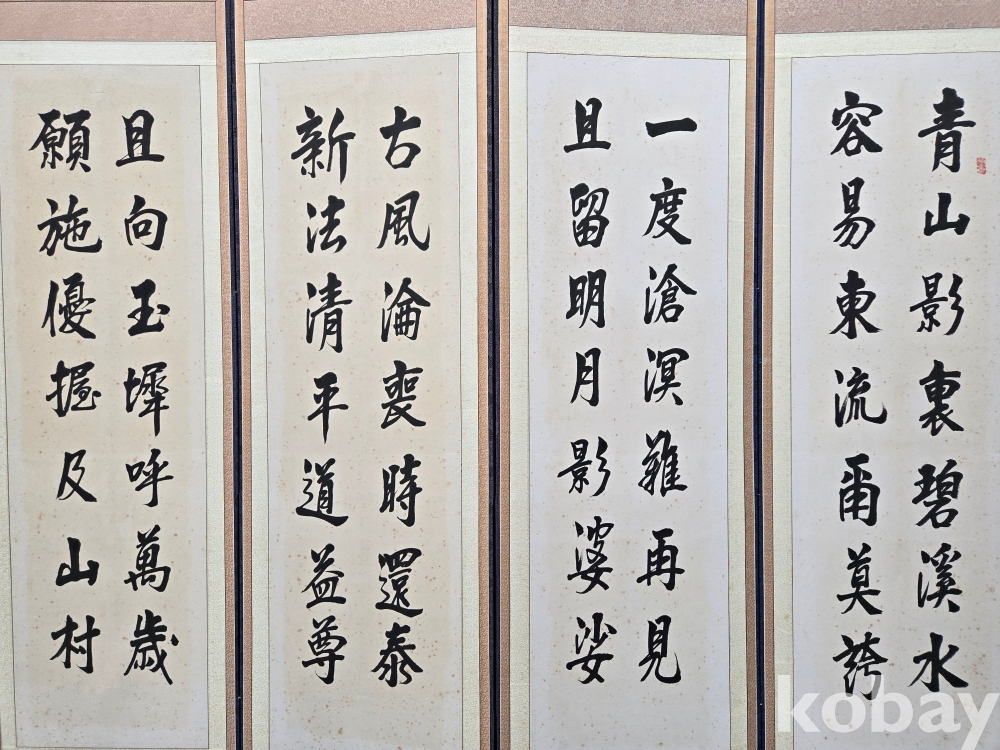 青山影裏碧溪水
容易東流爾莫誇
一度滄溟難再見
且留明月影婆娑
古風淪喪時還泰
新法清平道益尊
且向玉墀呼萬歲
願施優握及山村
kobay